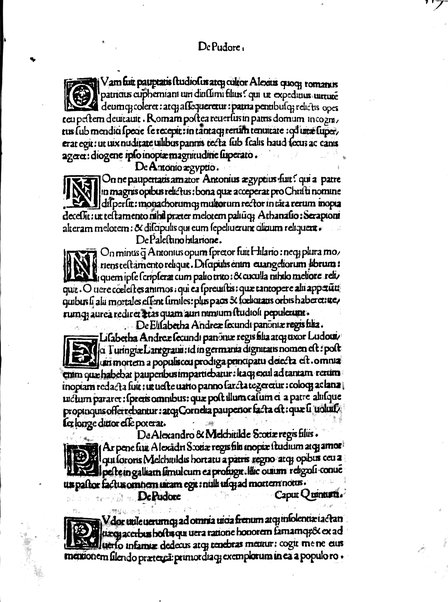 De Pudore.
QVam fuit paupertatis studiosus atq; cultor Alexius quoq; romanus
patricius euphemiani uiri ditissimi filius? qui ut expeditius uirtutē
deumq; coleret: atq; assequeretur: patria parentibusq; relictis opes
ceu pestem deuitauit. Romam postea reuersus in patris domum incogni,
tus sub mendici specie se recepit: in tantaq; rerum tenuitate: qđ uitæ super,
erat egit: ut uix nuditatē uilibus pannis tecta sub scalis haud secus ac canis
ageret: diogene ipso inopiæ magnitudine superato.
De Antonio ægyptio.
NOn ne paupertatis amator Antonius ægyptius fuit? qui a patre
in magnis opibus relictus: bona quæ acceperat pro Christi nomine
dispersit: monachorumq; multorum rector in tāta rerum inopia
decessit: ut testamento nihil præter melotem paliūq; Athanasio: Serapioni
alteram melotem: & discipulis qui eum sepelierunt cilicium reliquerit.
De Palestino hilarione.
NOn minus q̄ Antonius opum spretor fuit Hilario: neq; plura mo,
riens testamento reliquit. Discipulis enim euangeliorum librum:
quem ipse scripserat cum palio trito: & cuculla nihilo meliore reli,
quit. O uere cœlestes animos: qui ea spreuistis: quæ tantopere alii appetūt:
quibus si alii mortales essent similes: plus pacis & sotietatis orbis haberet: ue,
rumq; aurea rediret ætas quam auri nimium studioli pepulerunt.
De Elisabetha Andreæ secundi pannoniæ regis filia.
ELisabetha Andreæ secundi pannoniæ regis filia atq; uxor Ludoui,
ci Turingiæ Lantgrauii: id in germania dignitatis nomen est: post
uiri mortem a populis ceu prodiga principatu deiecta est. omnia
enim quæ habebat pauperibus impartiebatur: itaq; exul ad tantam rerum
inopiam redacta fuit: ut ueste uario panno sarcta tegeretur: coloq; ac lana
uictum pararet: spretis omnibus: quæ post illum casum ei a patre aliisque
propinquis offerebantur: atq; Cornelia pauperior facta est: quæ si uoluis,
set longe ditior esse poterat.
De Alexandro & Melchitilde Scotiæ regis filiis.
PAr pene fuit Alexādri Scotiæ regis filii inopiæ studium atq; amor
qui sororis Mechtildis hortatu a patris regno atq; opibus ceu a
peste in galliam simul cum ea profugit. Hic ouium religiosi conuē
tus pastor factus omnem uitam egit: nulli usq; ad mortem notus.
De Pudore Caput Quintum.
PVdor utile uerumq; ad omnia uicia frenum atq; insolentiæ iactan
tiæq; acerbus hostis qui uera ratione honorem famamq; & ex ad
uerso infamiæ dedecus atq; tenebras metuit: cogit me ne eius
mentionem silendo prætereā: primordiaq; exemplorum in ea a populo ro.